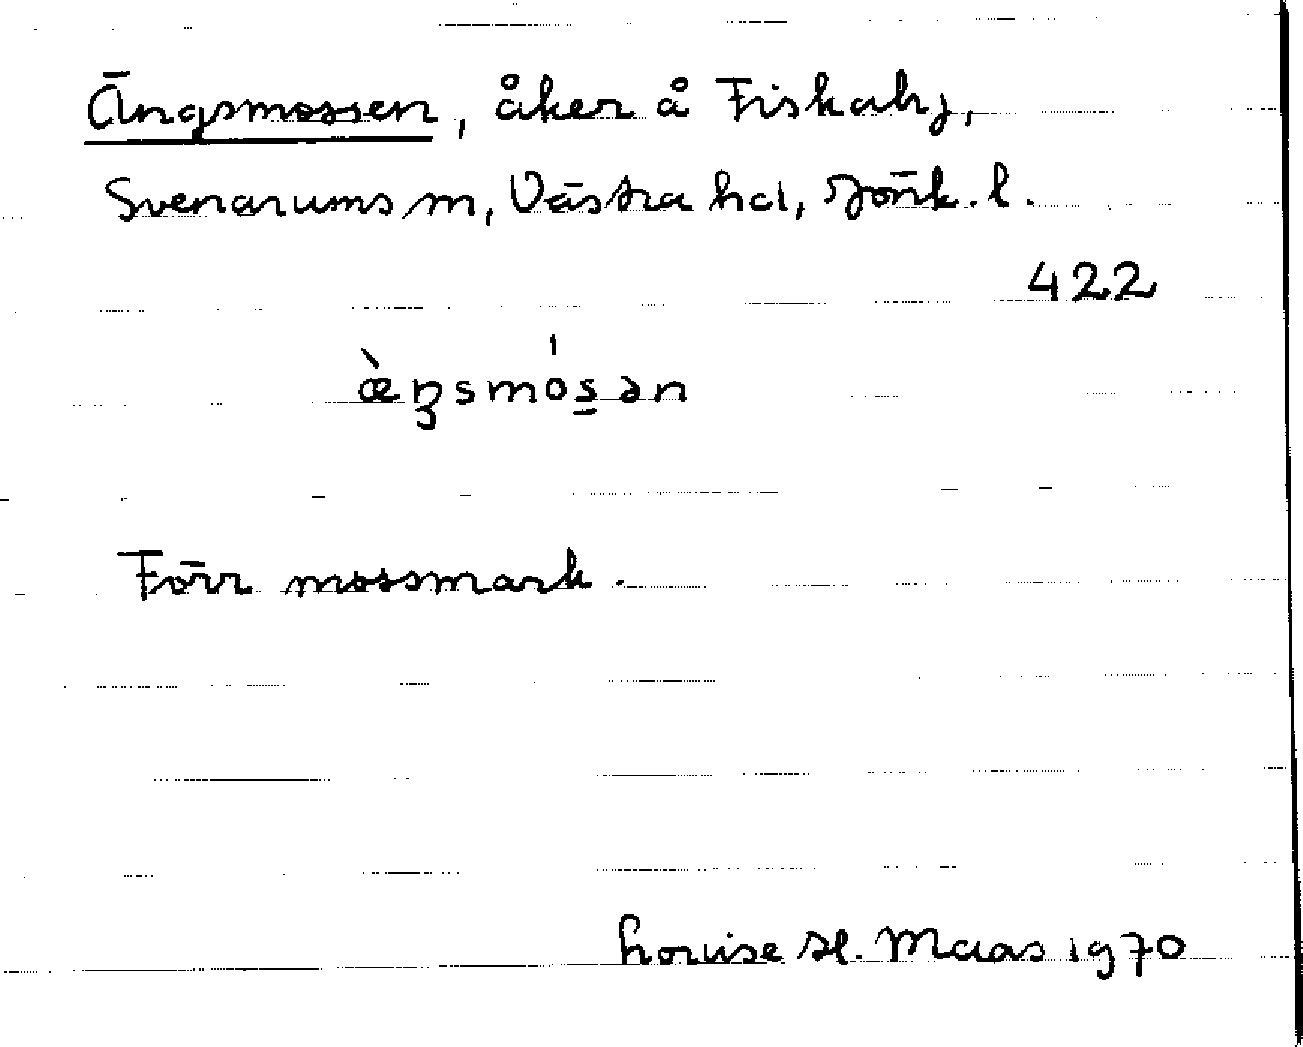 Ängsmossen, åker å Fiskaby,
Svenarums sn, Västra hd, Jönk. l.
422
æ̀ŋsmós̱ən
Förr mossmark.
Louise H. Maas 1970